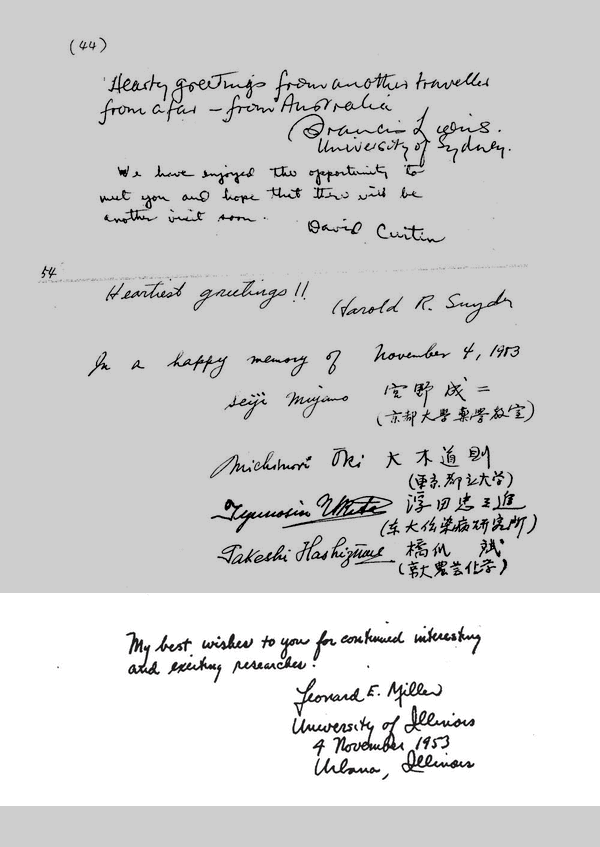 (44)
Hearty greetings from another traveller
from afar – from Australia
Francis Lions.
University of Sydney.
We have enjoyed the opportunity to
meet you and hope that there will be
another visit soon.
David Curtin
54
Heartiest greetings!!
Harold R. Snyder
In a happy memory of November 4, 1953
Seiji Miyano 宮野成二
(京都大學薬学教室)
Michinori Ōki 大木道則
(東京都立大学)
浮田忠之進
(东大伝染病研究所)
Takeshi Hashizume 橋爪 斌
(京大農芸化学)
My best wishes to you for continued interesting
and exciting researches.
Leonard E. Miller
University of Illinois
4 November 1953
Urbana, Illinois